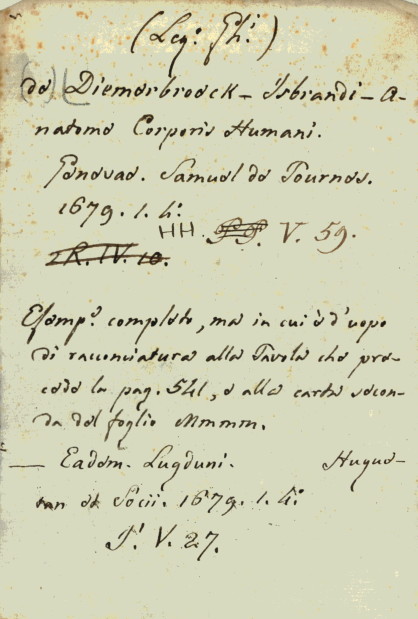 (Leg: Ph:)
de Diemerbroeck - Isbrandi - A-
natome Corporis Humani.
Genevae. Samuel de Tournes.
1679. 1. 4:
HH. V. 59.
2R. IV. 10.
Esemp: completo, ma in cui è d'uopo
di racconciatura alla Tavola che pre-
cede la pag. 541, e alla carta secon-
da del foglio Mmmm.
— Eadem. Lugduni. Hugue-
tan et Socii. 1679. 1. 4:
V. 27.